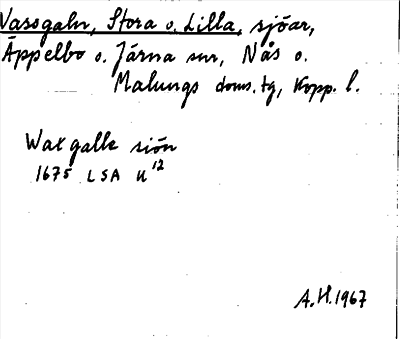 Vassgaln, Stora o. Lilla, sjöar,
Äppelbo o. Järna snr, Nås o.
Malungs doms.tg, Kopp. l.
Waxgalle siön
1675 LSA U12
A.H. 1967